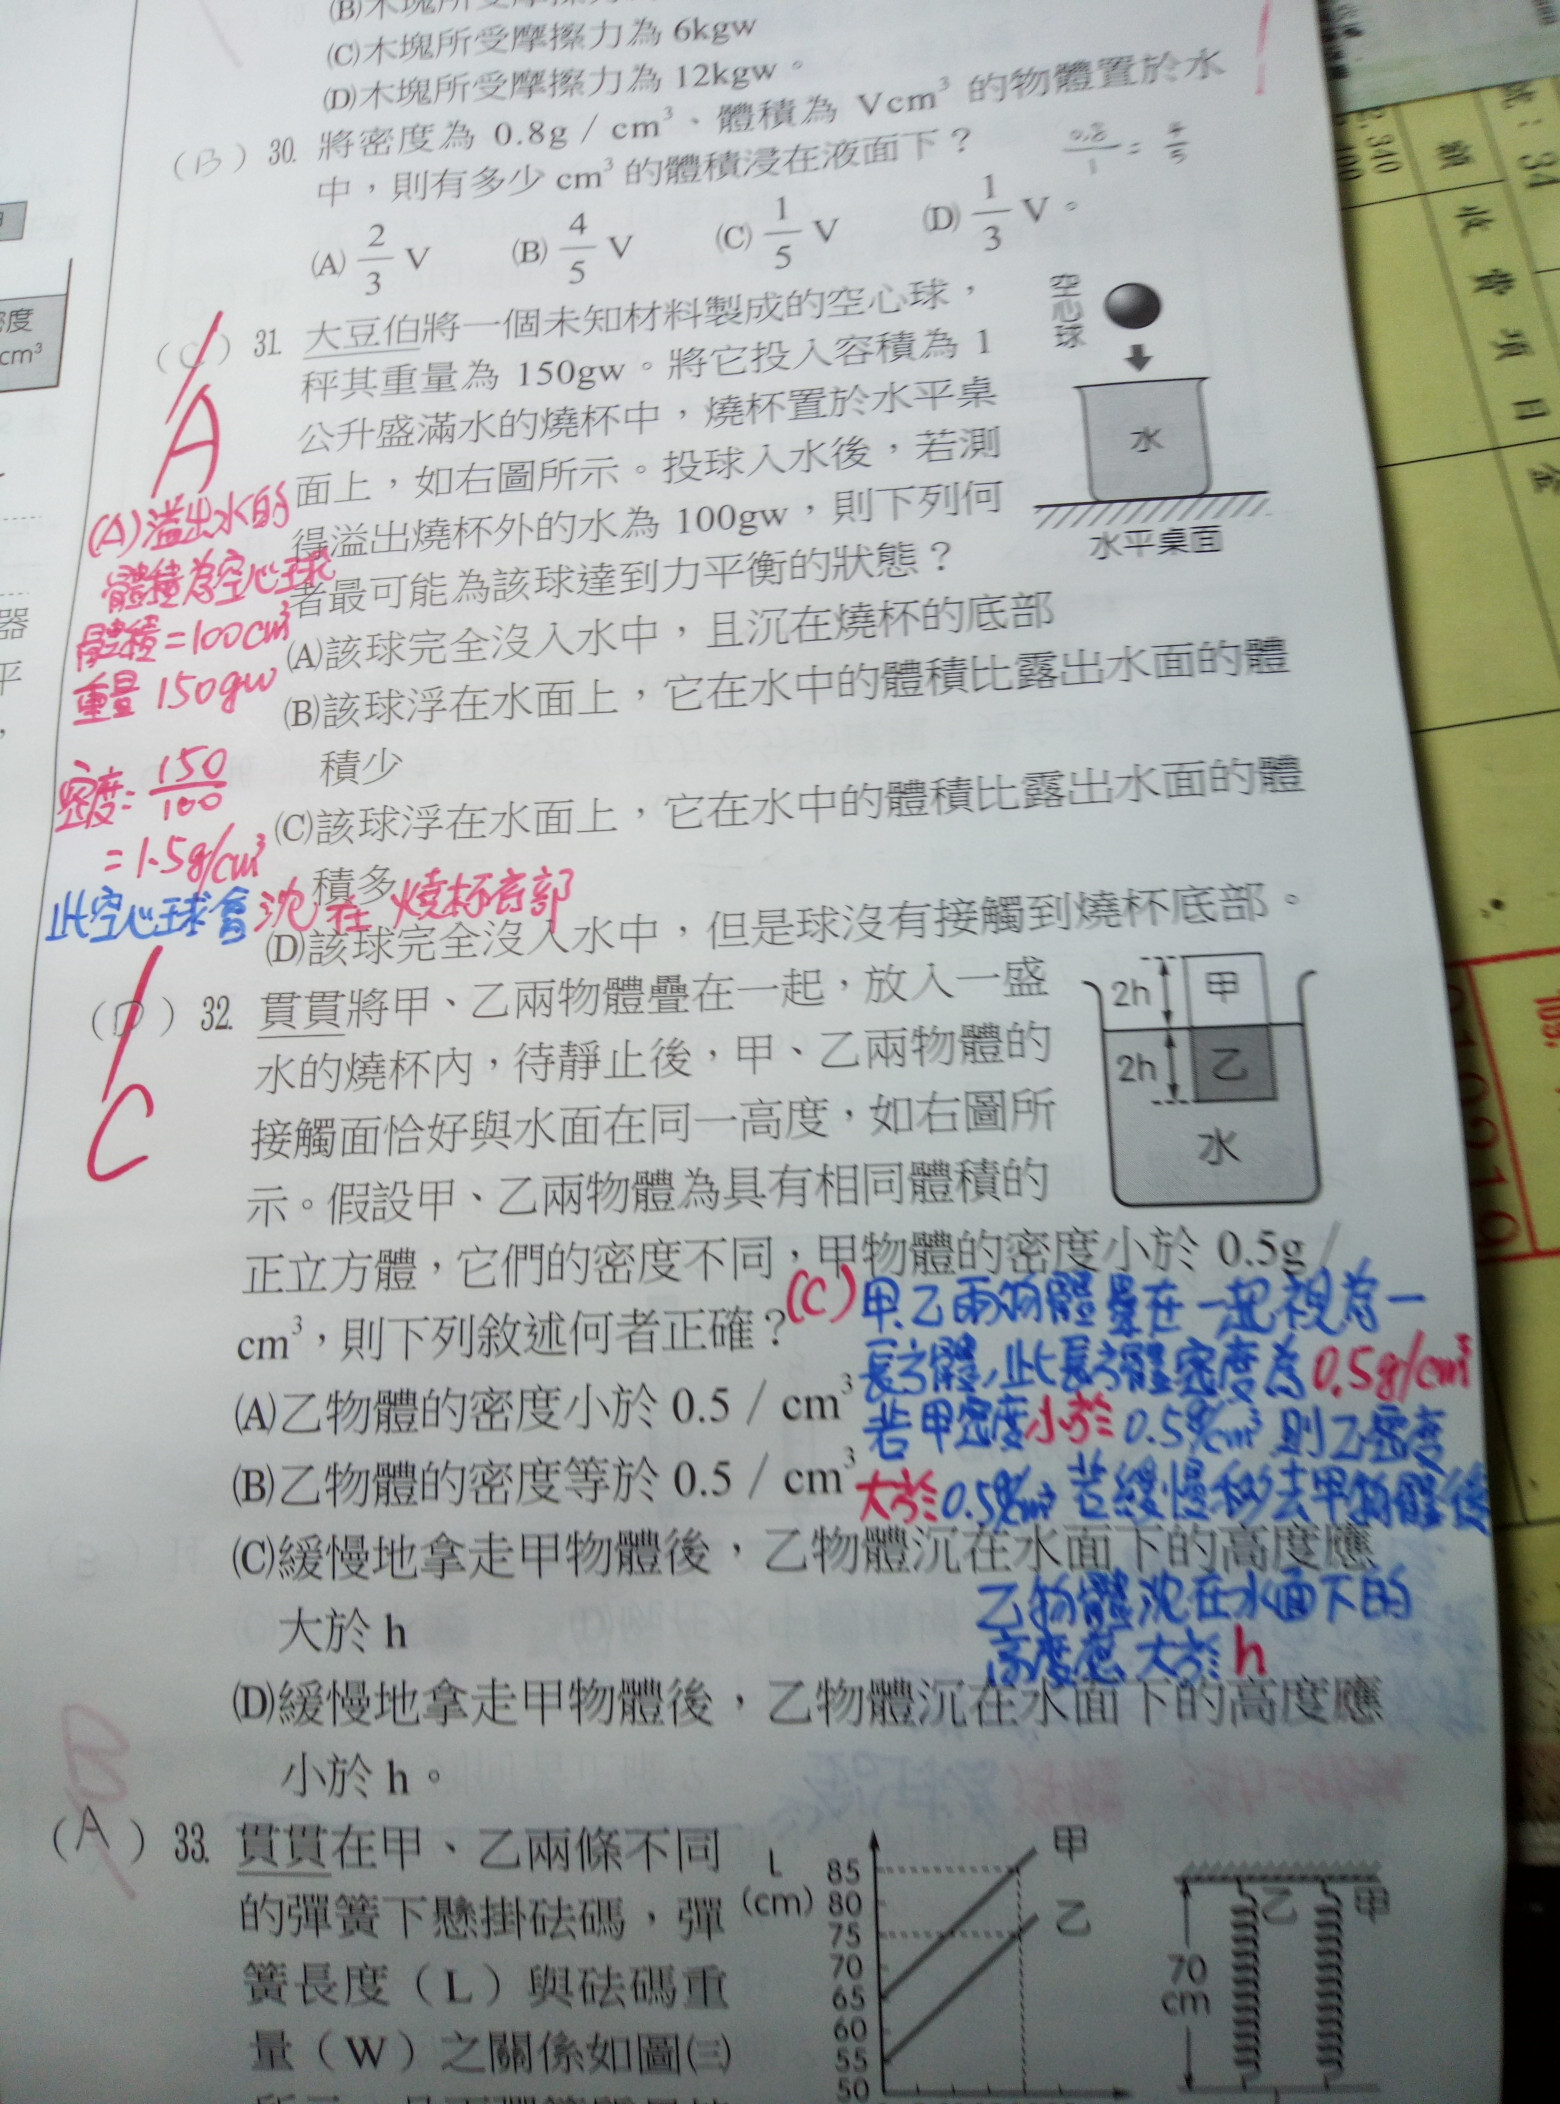 (C)木塊所受摩擦力為 6kgw
(D)木塊所受摩擦力為 12kgw。
(B) 30. 將密度為 0.8g / cm³、體積為 Vcm³ 的物體置於水
中，則有多少 cm³ 的體積浸在液面下？
0.8/1 = 4/5
(A) 2/3 V (B) 4/5 V (C) 1/5 V (D) 1/3 V。
(C) 31. 大豆伯將一個未知材料製成的空心球，
秤其重量為 150gw。將它投入容積為 1
公升盛滿水的燒杯中，燒杯置於水平桌
面上，如右圖所示。投球入水後，若測
得溢出燒杯外的水為 100gw，則下列何
者最可能為該球達到力平衡的狀態？
(A)該球完全沒入水中，且沉在燒杯的底部
(B)該球浮在水面上，它在水中的體積比露出水面的體
積少
(C)該球浮在水面上，它在水中的體積比露出水面的體
積多
(D)該球完全沒入水中，但是球沒有接觸到燒杯底部。
空心球
水
水平桌面
A
(A)溢出水的
體積為空心球
體積=100cm³
重量 150gw
密度=150/100
=1.5g/cm³
此空心球會沈在燒杯底部
(D) 32. 貫貫將甲、乙兩物體疊在一起，放入一盛
水的燒杯內，待靜止後，甲、乙兩物體的
接觸面恰好與水面在同一高度，如右圖所
示。假設甲、乙兩物體為具有相同體積的
正立方體，它們的密度不同，甲物體的密度小於 0.5g /
cm³，則下列敘述何者正確？
(A)乙物體的密度小於 0.5 / cm³
(B)乙物體的密度等於 0.5 / cm³
(C)緩慢地拿走甲物體後，乙物體沉在水面下的高度應
大於 h
(D)緩慢地拿走甲物體後，乙物體沉在水面下的高度應
小於 h。
2h 甲
2h 乙
水
C
(C)甲乙兩物體疊在一起視為一
長方體，此長方體密度為0.5g/cm³
若甲密度小於0.5g/cm³則乙密度
大於0.5g/cm³若緩慢移去甲物體後
乙物體沈在水面下的
高度應大於h
B
(A) 33. 貫貫在甲、乙兩條不同
的彈簧下懸掛砝碼，彈
簧長度（L）與砝碼重
量（W）之關係如圖㈢
L
(cm)
85
80
75
70
65
60
55
50
甲
乙
乙 甲
70
cm